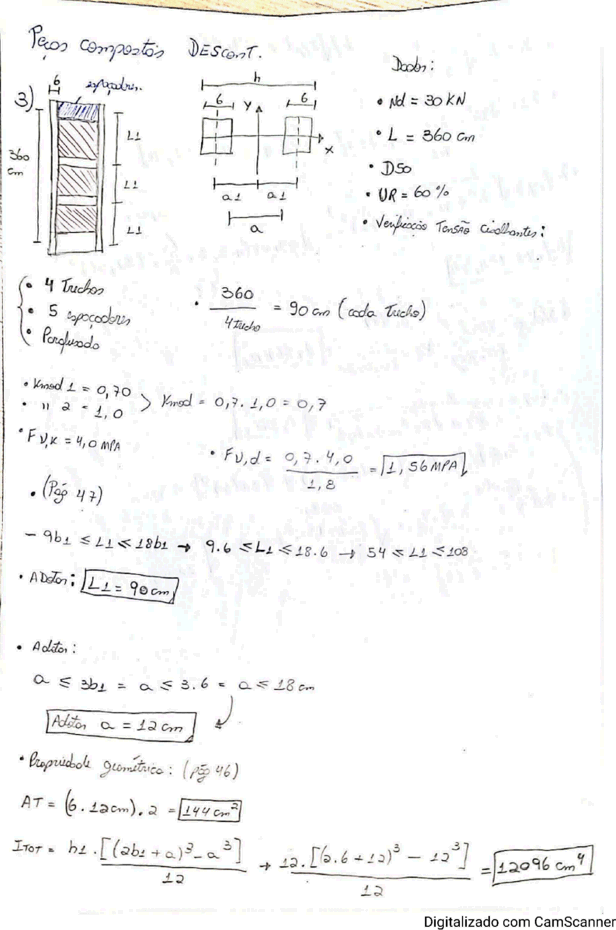 Peças compostas DESCONT.
Dados:
3)
6
espaçadores.
L1
L1
L1
360
cm
h
6
y
6
x
a1
a1
a
• Nd = 30 KN
• L = 360 cm
• D50
• UR = 60 %
• Verificação Tensão Cisalhantes:
• 4 Trechos
• 5 espaçadores
• Parafusado
• 360 / 4 Trecho = 90 cm (cada Trecho)
• Kmod 1 = 0,70
• " 2 = 1,0
> Kmod = 0,7 . 1,0 = 0,7
• Fv,k = 4,0 MPA
• Fv,d = 0,7 . 4,0 / 1,8 = 1,56 MPA
• (Pág 47)
- 9b1 ≤ L1 ≤ 18b1 → 9.6 ≤ L1 ≤ 18.6 → 54 ≤ L1 ≤ 108
• ADotar: L1 = 90 cm
• Adotar:
a ≤ 3b1 = a ≤ 3.6 = a ≤ 18 cm
Adotar a = 12 cm
• Propriedade geométrica: (pág 46)
AT = (6 . 12 cm) . 2 = 144 cm²
ITOT = h1 . [(2b1 + a)³ - a³] / 12 → 12 . [(2.6 + 12)³ - 12³] / 12 = 12096 cm⁴
Digitalizado com CamScanner